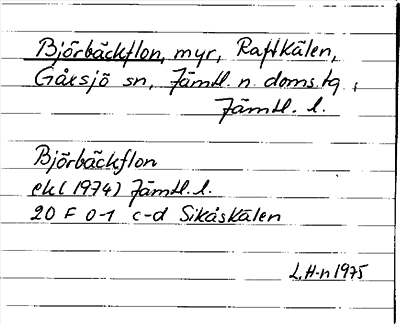 Björbäckflon, myr, Raftkälen,
Gåxsjö sn, Jämtl. n. doms.hq,
Jämtl. l.
Björbäckflon
ekl (1974) Jämtl. l.
20 F 0-1 c-d Sikåskälen
L. H-n 1975